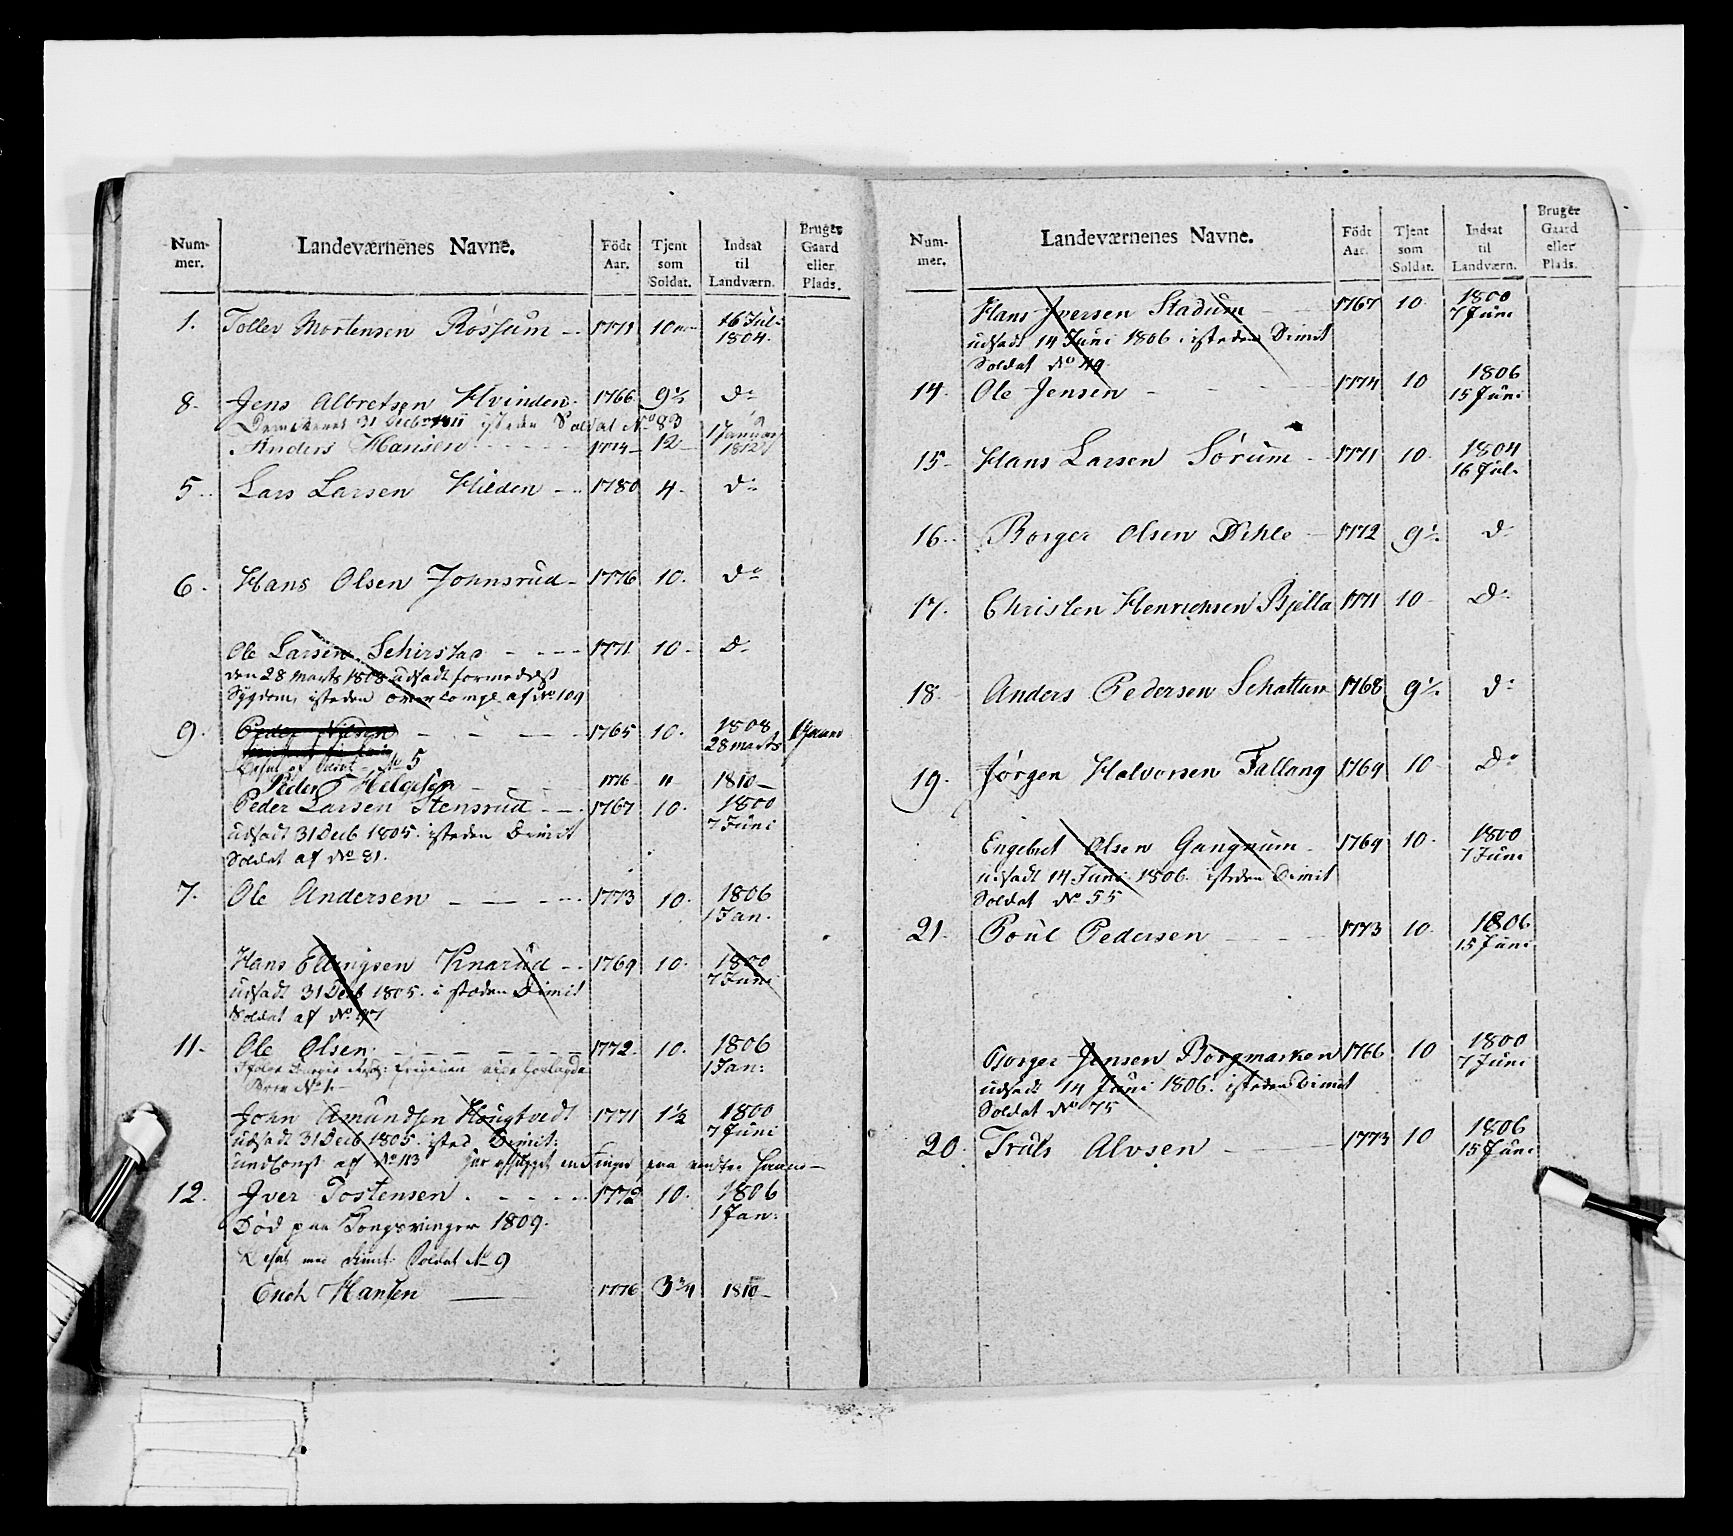 Num- mer. Landeværnenes Navne. Födt Aar. Tjent som Soldat. Indsat til Landværn. Bruger Gaard eller Plads.
1. Toller Mortensen Røssum 1771 10 16 Jul: 1804.
8. Jens Albretsen Hvinden 1766 9½ Do
31 Decbr 1811 isteden Soldat No 83
Anders Hansen 1774 12 1 Januar 1812
5. Lars Larsen Hilden 1780 4 Do
6. Hans Olsen Johnsrud 1776 10. Do
Ole Larsen Schirstad 1771 10 Do
den 28 Marts 1808 udsadt formedelst
Sygdom, isteden over Compl. af No 109
9. Peder Nilsen 1765 10. 1808 28 Marts Gaard
No 5
Peder Helgesen 1776 11 1810
Peder Larsen Stensrud 1767 10. 1800 7 Juni
udsadt 31 Decb 1805. isteden Dimit
Soldat af No 81.
7. Ole Andersen 1773 10. 1806 1 Jan.
Hans Ellingsen Knarud 1769 10. 1800 7 Juni
udsadt 31 Decb 1805. isteden Dimit
Soldat af No 97
11. Ole Olsen 1772. 10. 1806 1 Jan:
No 1
John Amundsen Hougtvedt 1771 1½ 1800 7 Juni
udsadt 31 Decb 1805. isted Dimit:
af No 113
12. Iver Tostensen 1772 10. 1806 1 Jan:
Død paa Kongsvinger 1809.
Besat med dimit: Soldat No 9
Erich Hansen 1776 3¾ 1810
Num- mer. Landeværnenes Navne. Födt Aar. Tjent som Soldat. Indsat til Landværn. Bruger Gaard eller Plads.
Hans Iversen Stadum 1767 10. 1800 7 Juni
udsadt 14 Juni 1806. isteden Dimit
Soldat No 49.
14. Ole Jensen 1774 10 1806 15 Juni
15. Hans Larsen Sørum 1771 10. 1804 16 Jul.
16. Borger Olsen Dihle 1772 9½. Do
17. Christen Henrichsen Bjella 1771 10 Do
18. Anders Pedersen Schattum 1768 9½. Do
19. Jørgen Halvorsen Fallang 1769 10 Do
Engebret Olsen Gangnum 1769 10. 1800 7 Juni
udsadt 14 Juni 1806. isteden Dimit
Soldat No 55
21. Poul Pedersen 1773 10. 1806 15 Juni
Borger Jensen Borgmarken 1766 10 1800 7 Juni
udsadt 14 Juni 1806. isteden Dimit
Soldat No 75
20. Truls Alvsen 1773 10 1806 15 Juni